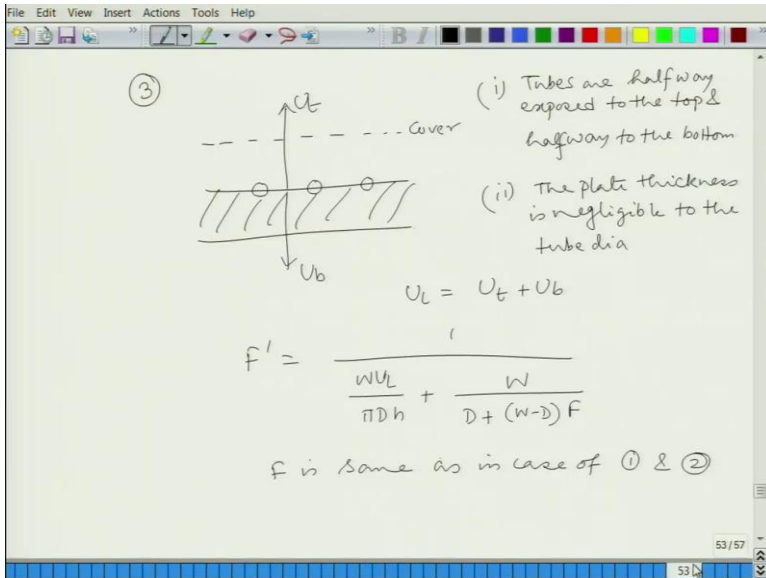 File Edit View Insert Actions Tools Help
B I
③
Ut
cover
Ub
(i) Tubes are halfway
exposed to the top &
halfway to the bottom
(ii) The plate thickness
is negligible to the
tube dia
UL = Ut + Ub
F' = 1 / ( WUL / πDh + W / D + (W-D) F )
F is same as in case of ① & ②
53/57
53